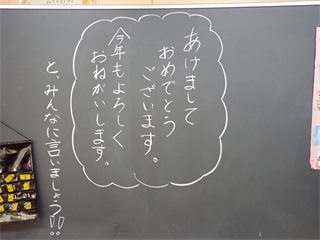 あけまして
おめでとう
ございます。
今年もよろしく
おねがいします。
と、みんなに言いましょう!!